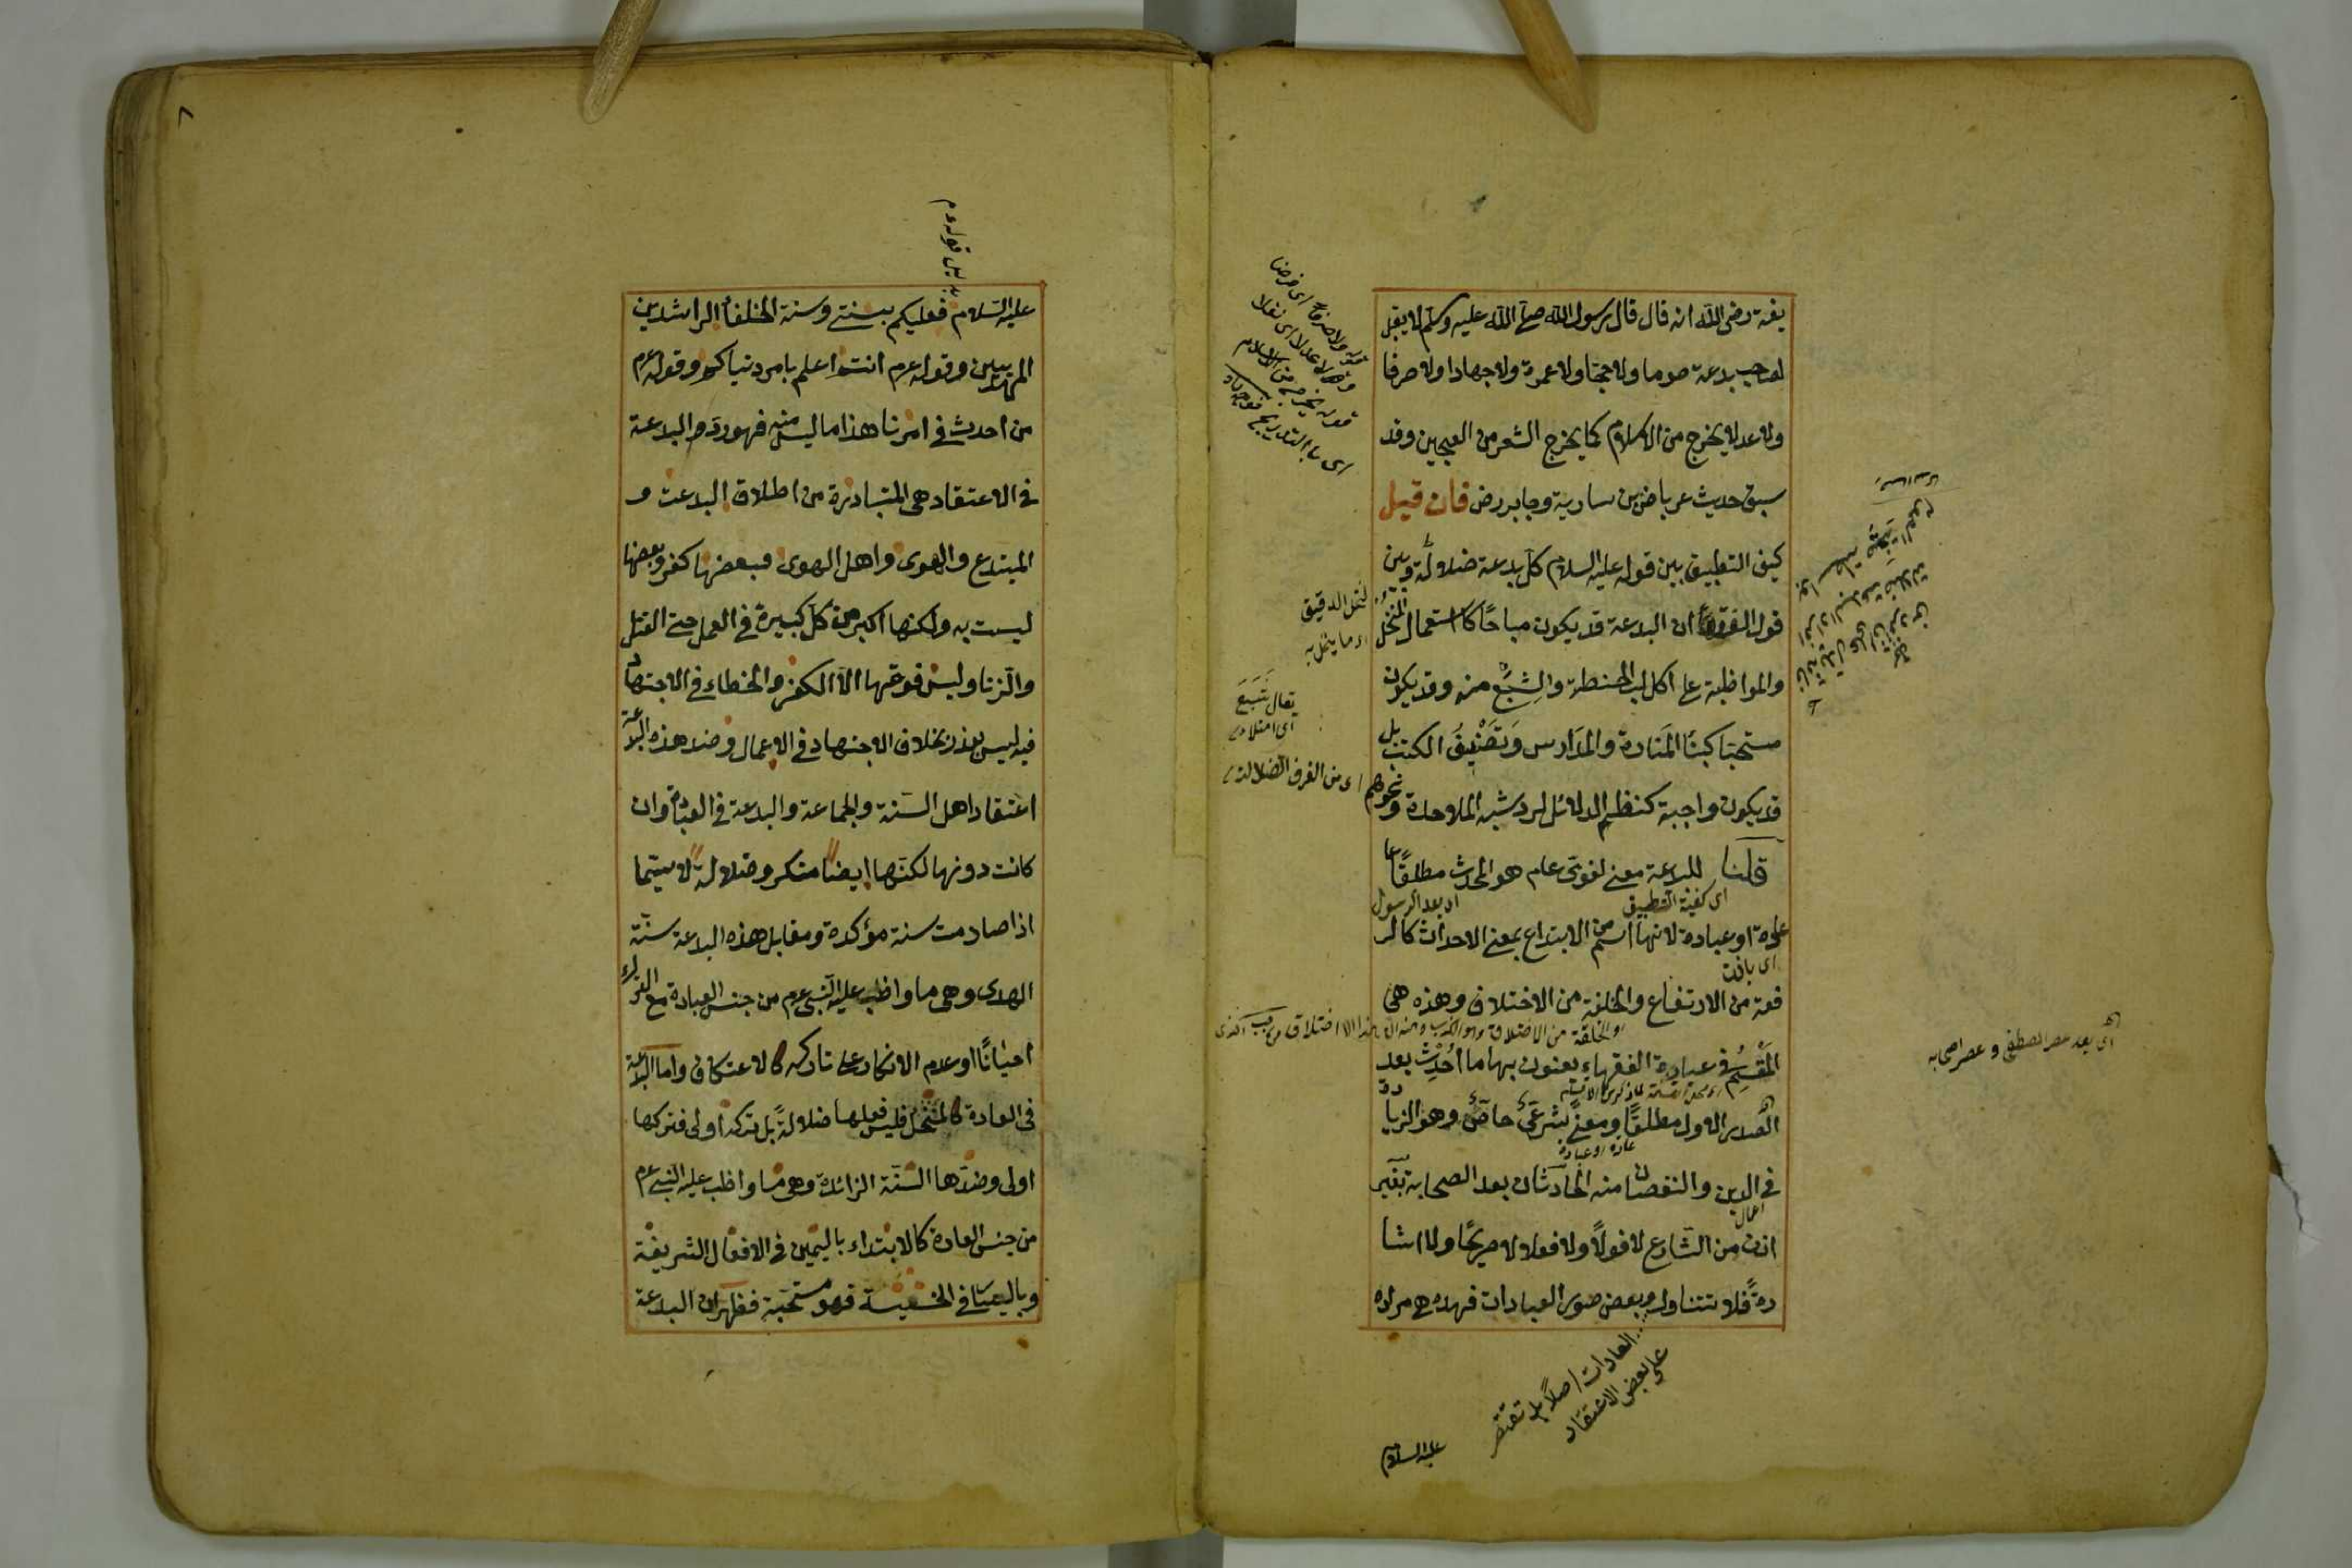 يفة رضى الله انه قال قال رسول الله صلى الله عليه وسلم لا يقبل
لصاحب بدعة صوما ولا حجا ولا عمرة ولا جهادا ولا صرفا
ولا عدلا يخرج من الاسلام كما يخرج الشعر من العجين وقد
سبق حديث عرباض بن سارية وجابر رض فان قيل
كيف التطبيق بين قوله عليه السلام كل بدعة ضلالة وبين
قول الفقهاء ان البدعة قد يكون مباحا كاستعمال المنخل
والمواظبة على اكل لب الحنطة والشبع منه وقد يكون
مستحبا كبناء المنارة والمدارس وتصنيف الكتب بل
قد يكون واجبة كنظم الدلائل لرد شبه الملاحدة ونحوهم
قلنا للبدعة معنى لغوى عام هو المحدث مطلقا
عادة او عبادة لانها اسم من الابتداع بمعنى الاحداث كالر
فعة من الارتفاع والخلفة من الاختلاف وهذه هى
المقسم فى عبارة الفقهاء يعنون بها ما احدث بعد
الصدر الاول مطلقا ومعنى شرعى خاص وهو الزيا
فى الدين والنقصان منه الحادثان بعد الصحابة بغير
اذن من الشارع لا قولا ولا فعلا لا صريحا ولا اشا
رة فلا تتناول وبعض صور العبادات فهذه هى مراده
اى كيفية التطبيق
اى بعد الرسول
عادة او عبادة
لنخل الدقيق
اى ما ينخل به
يقال شبع
اى امتلاء
اى من الفرق الضلالة
اى بعد عصر المصطفى وعصر اصحابه
العادات اصلا بل تقتصر
على بعض الاعتقاد
عليه السلام
٨
بدليل قوله عم
عليه السلام فعليكم بسنتى وسنة الخلفاء الراشدين
المهديين وقوله عم انتم اعلم بامر دنياكم وقوله عم
من احدث فى امرنا هذا ما ليس منه فهو رد والبدعة
فى الاعتقاد هى المتبادرة من اطلاق البدعة و
المبتدع والهوى واهل الهوى فبعضها كفر وبعضها
ليست به ولكنها اكبر من كل كبيرة فى العمل حتى القتل
والزنا وليس فوقها الا الكفر والخطاء فى الاجتهاد
فيه ليس بعذر بخلاف الاجتهاد فى الاعمال وضد هذه البدعة
اعتقاد اهل السنة والجماعة والبدعة فى العبادة وان
كانت دونها لكنها ايضا منكر وضلالة لا سيما
اذا صادمت سنة مؤكدة ومقابل هذه البدعة سنة
الهدى وهى ما واظب عليه النبى عم من جنس العبادة مع الترك
احيانا او عدم الانكار على تاركه كالاعتكاف واما البدعة
فى العادة كالمنخل فليس فعلها ضلالة بل تركه اولى فتركها
اولى وضدها السنة الزائدة وهى ما واظب عليه النبى عم
من جنس العادة كالابتداء باليمين فى الافعال الشريفة
وباليسار فى الخسيسة فهو مستحبة فظهر ان البدعة